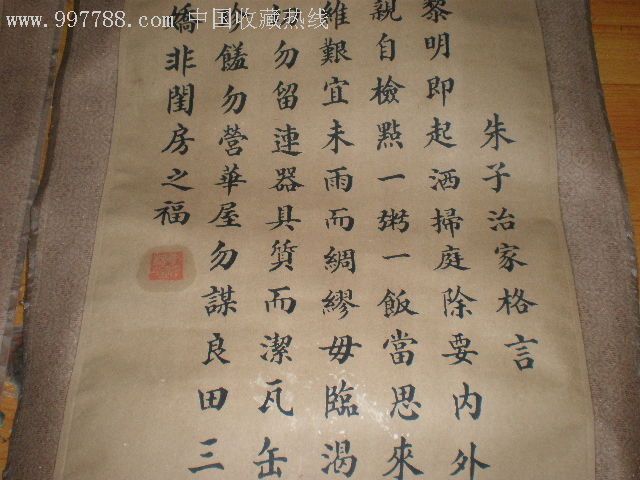 www.997788.com 中国收藏热线
朱子治家格言
黎明即起洒掃庭除要内外
親自檢點一粥一飯當思來
維艱宜未雨而綢繆毋臨渴
勿留連器具質而潔瓦缶
饈勿營華屋勿謀良田三
嬌非閨房之福